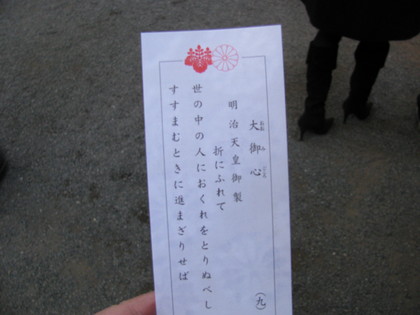 大御心
おおみごころ
明治天皇御製
折にふれて
世の中の人におくれをとりぬべし
すすまむときに進まざりせば
(九)